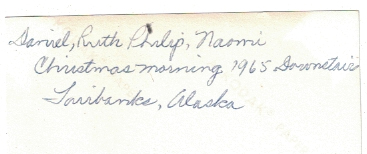 Daniel, Ruth Philip, Naomi
Christmas morning 1965 Downstairs
Fairbanks, Alaska